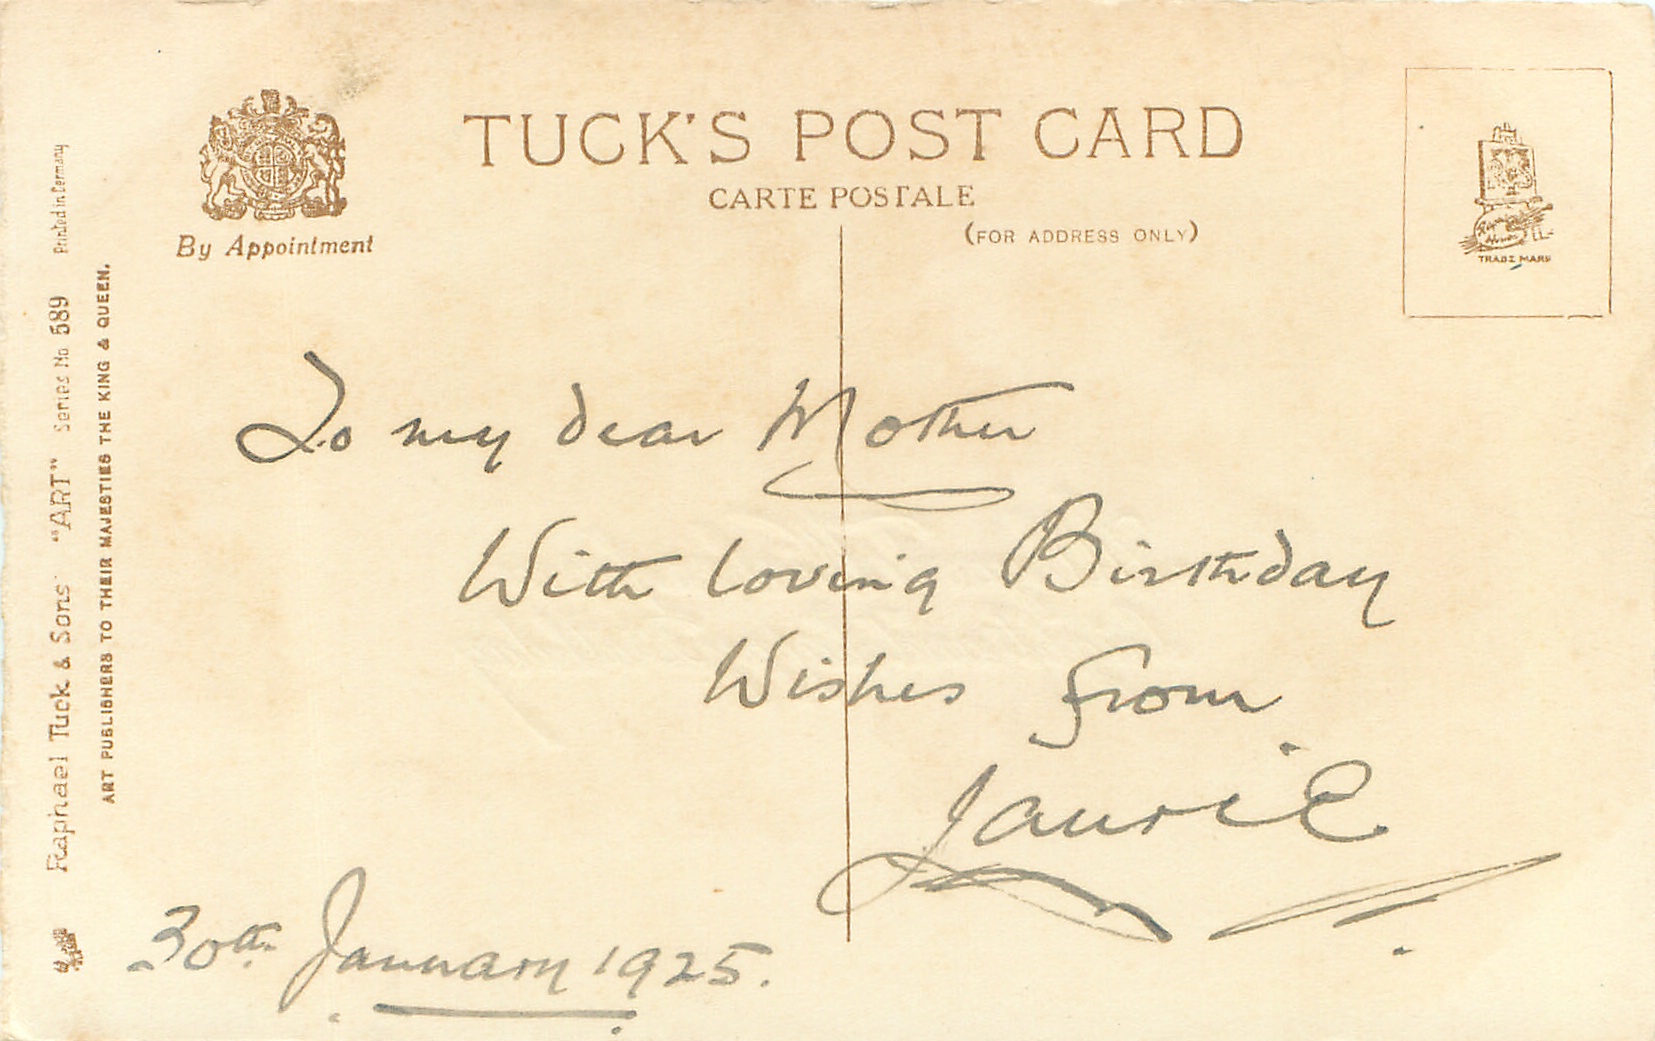 TUCK'S POST CARD
CARTE POSTALE
(FOR ADDRESS ONLY)
By Appointment
TRADE MARK
Raphael Tuck & Sons' "ART" Series No 589 Printed in Germany
ART PUBLISHERS TO THEIR MAJESTIES THE KING & QUEEN.
To my dear Mother
With loving Birthday
Wishes from
Laurie
30th January 1925.